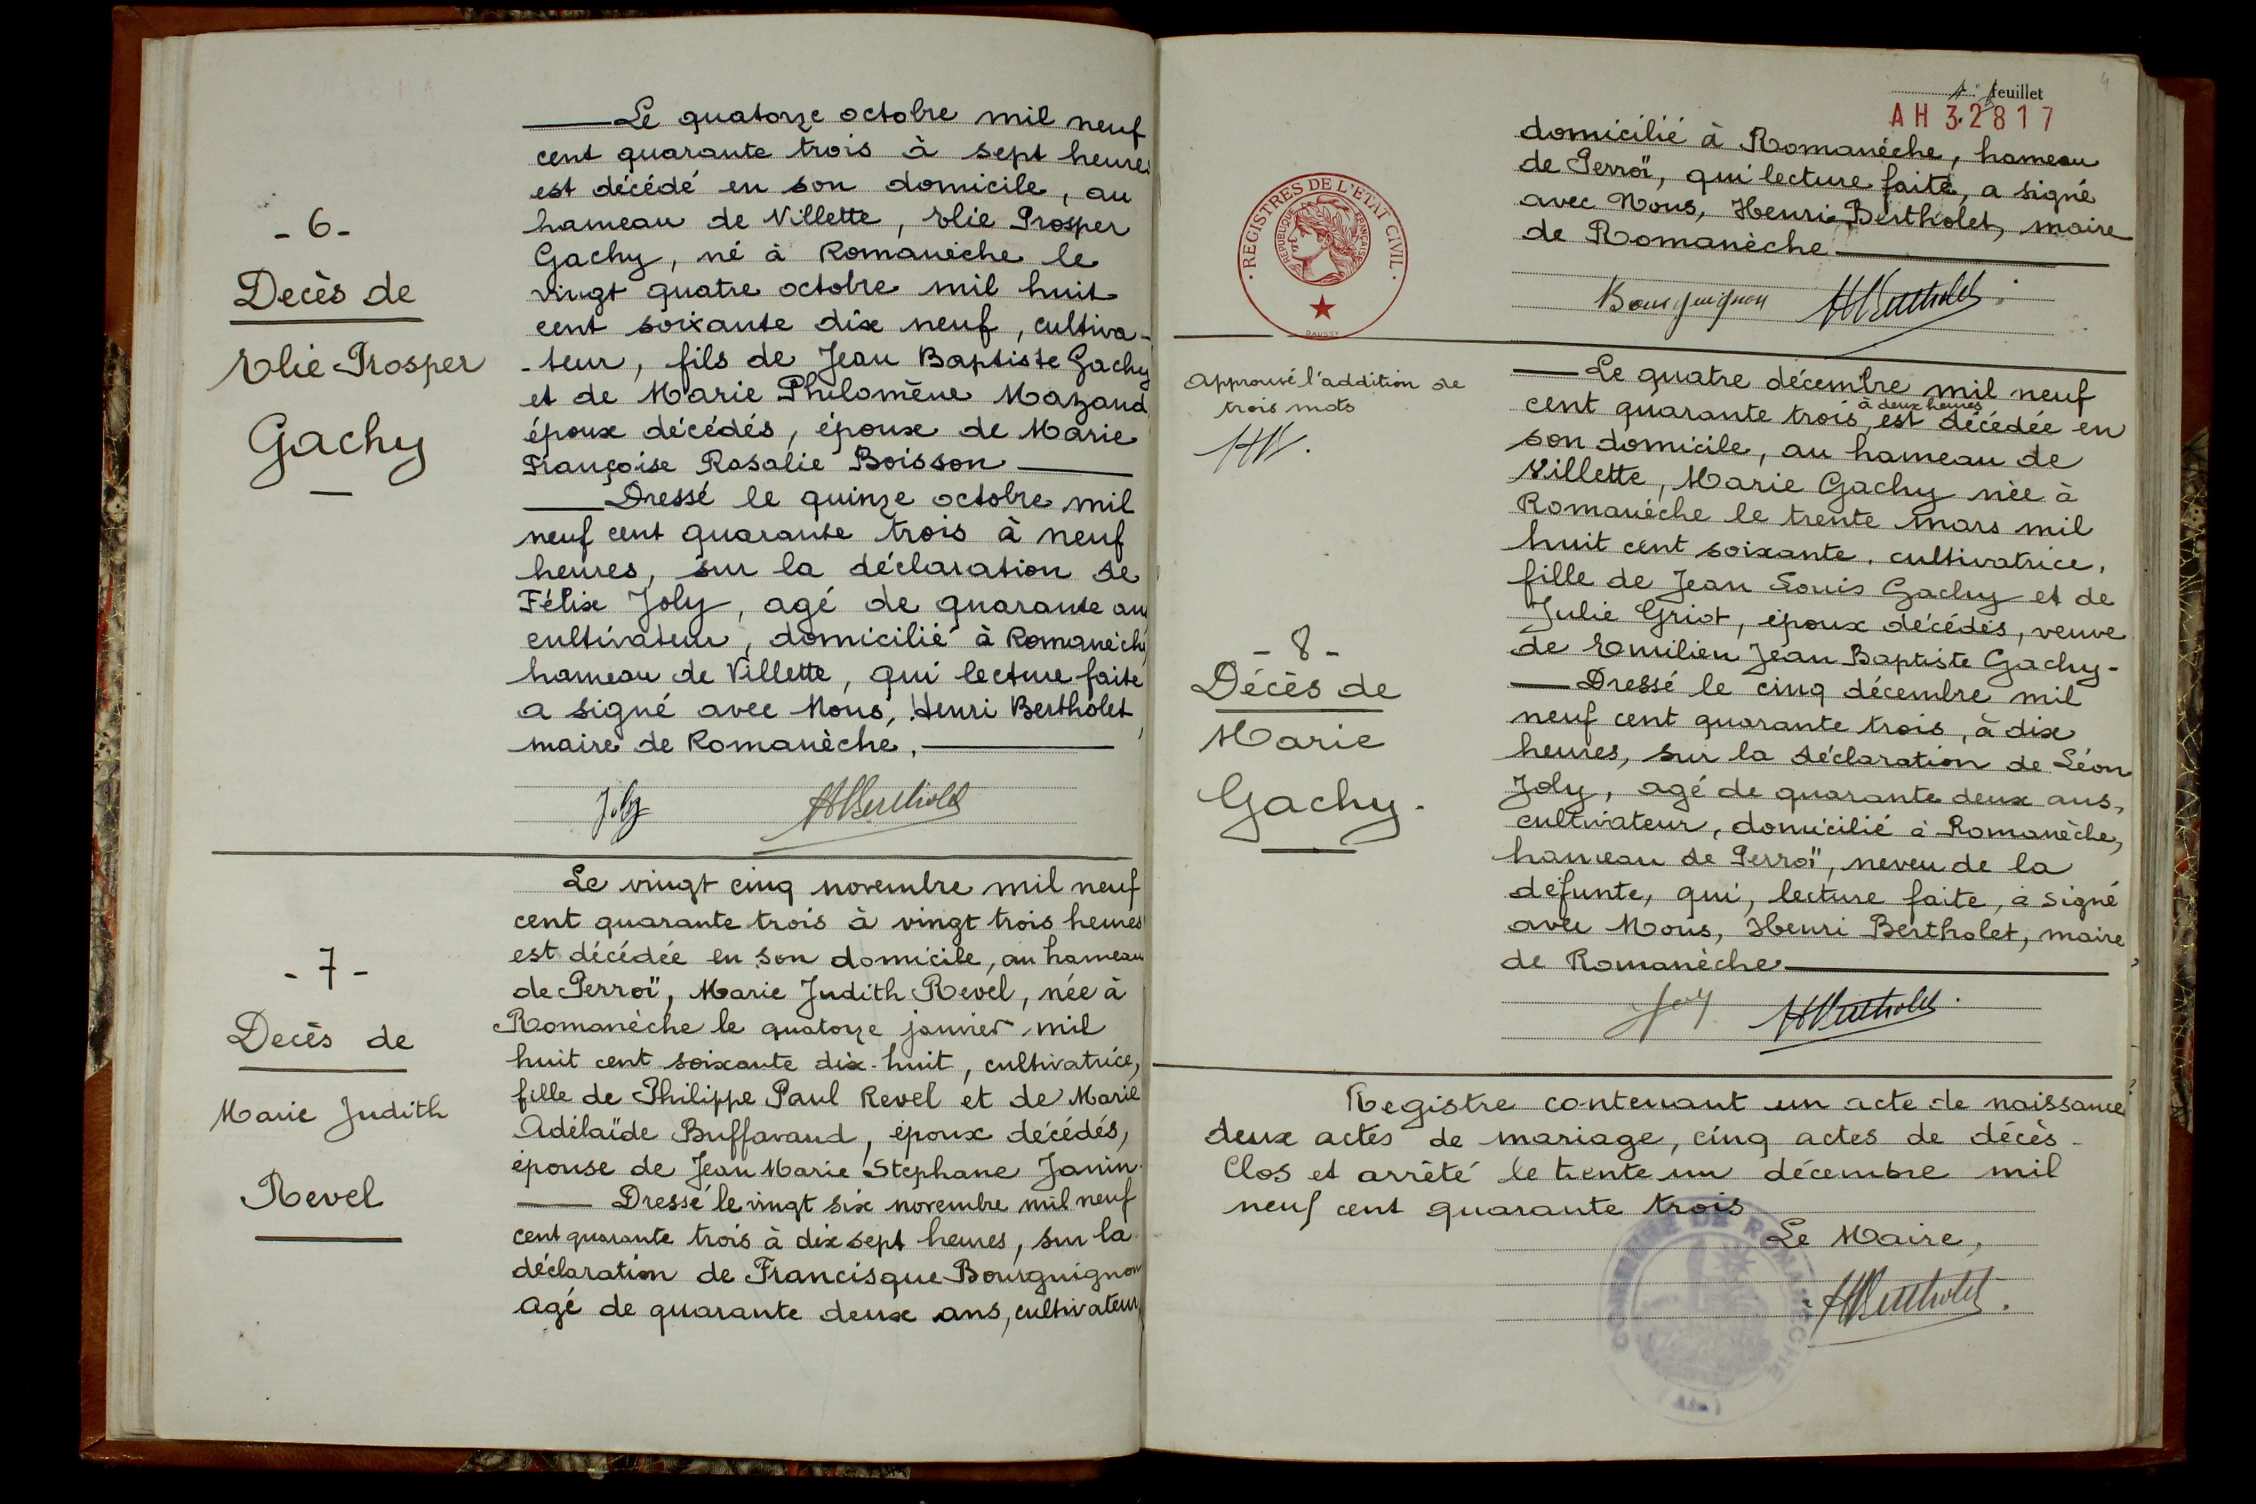 - 6 -
Decès de
Elie Prosper
Gachy
Le quatorze octobre mil neuf
cent quarante trois à sept heures
est décédé en son domicile, au
hameau de Villette, Elie Prosper
Gachy, né à Romanèche le
vingt quatre octobre mil huit
cent soixante dix neuf, cultiva-
-teur, fils de Jean Baptiste Gachy
et de Marie Philomène Mazaud
époux décédés, époux de Marie
Françoise Rosalie Boisson
Dressé le quinze octobre mil
neuf cent quarante trois à neuf
heures, sur la déclaration de
Félix Joly, agé de quarante ans
cultivateur, domicilié à Romanèche
hameau de Villette, qui lecture faite
a signé avec Nous, Henri Bertholet,
maire de Romanèche.
Joly HBertholet
- 7 -
Decès de
Marie Judith
Revel
Le vingt cinq novembre mil neuf
cent quarante trois à vingt trois heures
est décédée en son domicile, au hameau
de Perroï, Marie Judith Revel, née à
Romanèche le quatorze janvier mil
huit cent soixante dix-huit, cultivatrice,
fille de Philippe Paul Revel et de Marie
Adélaïde Buffavand, époux décédés,
épouse de Jean Marie Stephane Janin.
Dressé le vingt six novembre mil neuf
cent quarante trois à dix sept heures, sur la
déclaration de Francisque Bourguignon
agé de quarante deux ans, cultivateur,
4
4e feuillet
AH 32817
domicilié à Romanéche, hameau
de Perroï, qui lecture faite, a signé
avec Nous, Henri Bertholet, maire
de Romanèche
Bourguignon HBertholet
· REGISTRES DE L'ETAT CIVIL ·
REPUBLIQUE FRANÇAISE
DAUSSY
Approuvé l'addition de
trois mots
HB.
- 8 -
Décès de
Marie
Gachy.
Le quatre décembre mil neuf
à deux heures
cent quarante trois, est décédée en
son domicile, au hameau de
Villette, Marie Gachy née à
Romanèche le trente mars mil
huit cent soixante, cultivatrice,
fille de Jean Louis Gachy et de
Julie Griot, époux décédés, veuve
de Emilien Jean Baptiste Gachy-
Dressé le cinq décembre mil
neuf cent quarante trois, à dix
heures, sur la déclaration de Léon
Joly, agé de quarante deux ans,
cultivateur, domicilié à Romanèche,
hameau de Perroï, neveu de la
défunte, qui, lecture faite, a signé
avec Nous, Henri Bertholet, maire
de Romanèche
Joly HBertholet
Registre contenant un acte de naissance
deux actes de mariage, cinq actes de décès.
Clos et arrêté le trente un décembre mil
neuf cent quarante trois
Le Maire,
HBertholet.
COMMUNE DE ROMANECHE
(AIN)